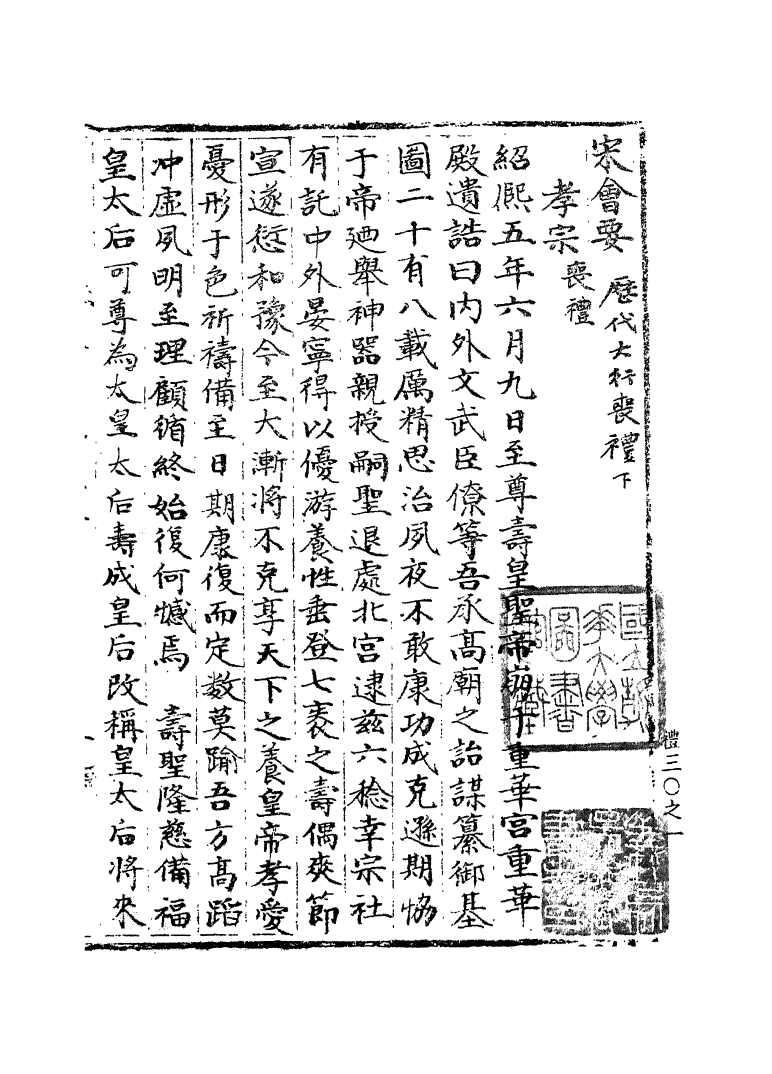 宋會要 歷代大行喪禮下
孝宗喪禮
紹熙五年六月九日至尊壽皇聖帝崩于重華宮重華
殿遺誥曰內外文武臣僚等吾承高廟之詒謀纂御基
圖二十有八載厲精思治夙夜不敢康功成克遜期恊
于帝廼舉神器親授嗣聖退處北宮逮兹六稔幸宗社
有託中外晏寧得以優游養性垂登七袠之壽偶爽節
宣遂愆和豫今至大漸將不克享天下之養皇帝孝愛
憂形于色祈禱備至日期康復而定數莫踰吾方高蹈
冲虛夙明至理顧循終始復何憾焉 壽聖隆慈備福
皇太后可尊為太皇太后壽成皇后改稱皇太后將來
國立
大學
圖書
禮三〇之一